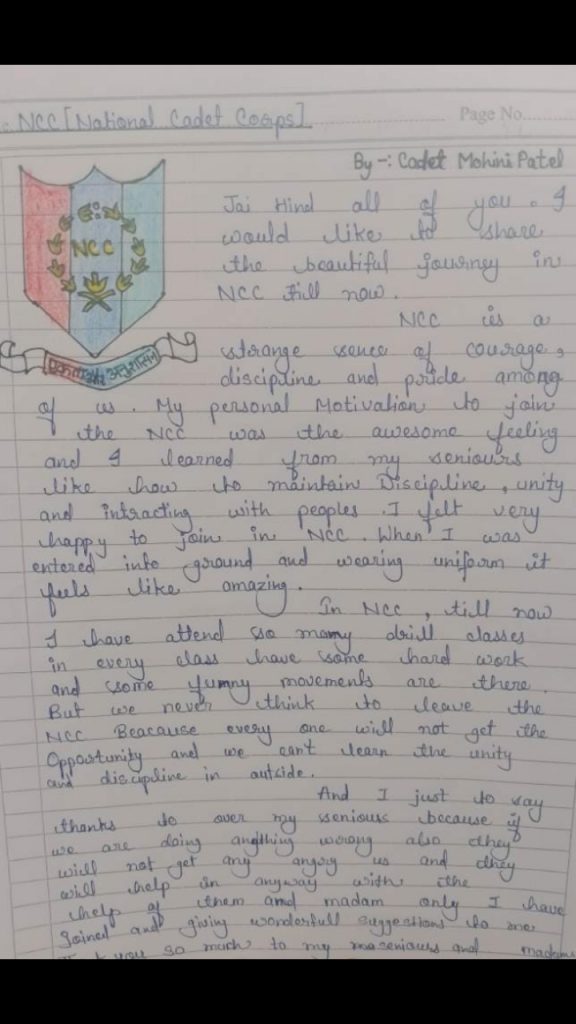 NCC [National Cadet Corps]
Page No.
By -: Cadet Mohini Patel
NCC
Jai Hind all of you. I
would like to share
the beautiful journey in
NCC till now.
NCC is a
strange sence of courage,
discipline and pride among
of us. My personal Motivation to join
the NCC was the awesome feeling
and I learned from my seniours
like how to maintain Discipline, unity
and intracting with peoples. I felt very
happy to join in NCC. When I was
entered into ground and wearing uniform it
feels like amazing.
In NCC, till now
I have attend so many drill classes
in every class have some hard work
and some funny movements are there.
But we never think to leave the
NCC Beacause every one will not get the
Opportunity and we can't learn the unity
and discipline in outside.
And I just to say
thanks to over my senious because if
we are doing anything wrong also they
will not get any angry us and they
will help in anyway with the
help of them and madam only I have
Joined and giving wonderfull suggestions to me
you so much to my and madams